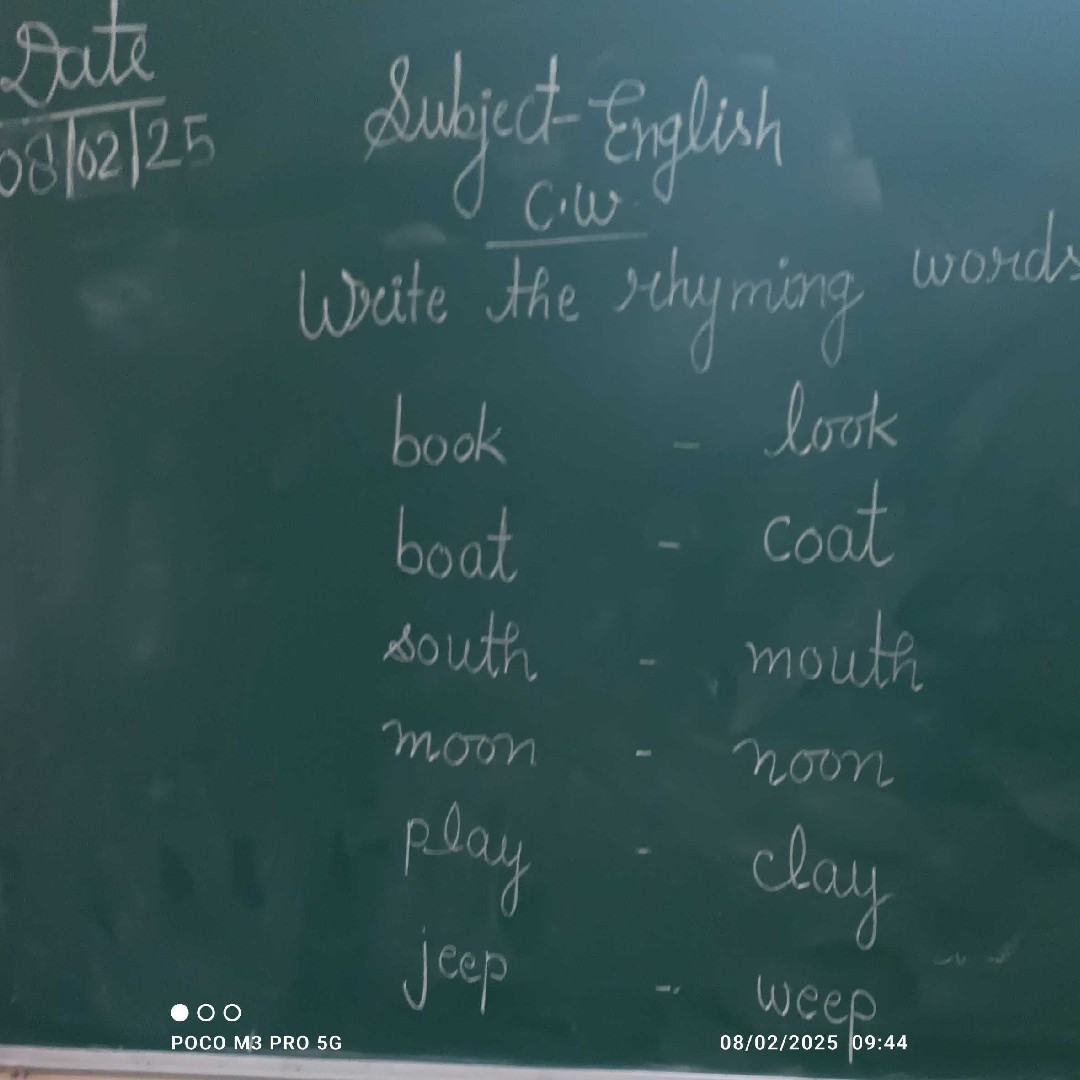 Date
08/02/25
Subject-English
C.W
Write the rhyming words
book - look
boat - coat
south - mouth
moon - noon
play - clay
jeep - weep
POCO M3 PRO 5G
08/02/2025 09:44